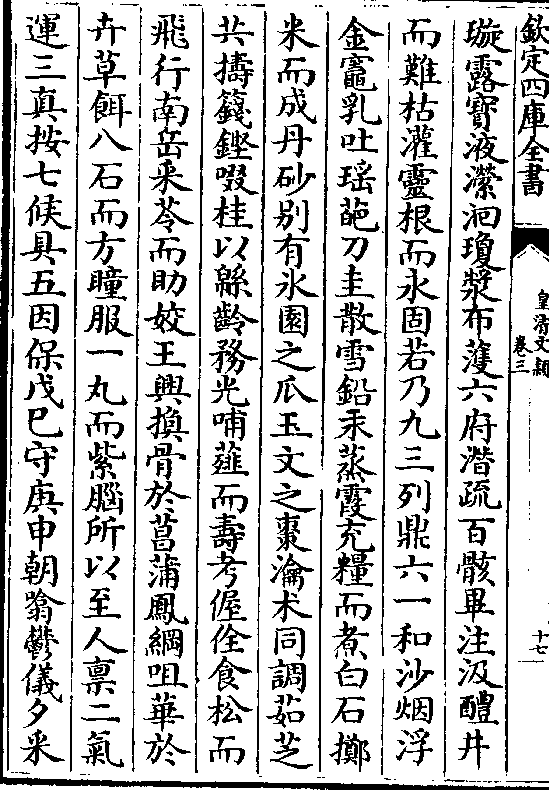 欽定四庫全書
皇清文穎
卷三
十七
璇露寳液瀠洄瓊漿布薳六府潛疏百骸畢注汲醴井
而難枯灌靈根而永固若乃九三列鼎六一和沙烟浮
金竈乳吐瑶葩刀圭散雪鉛汞蒸霞充糧而煮白石擲
米而成丹砂别有氷園之瓜玉文之棗瀹术同調茹芝
共擣籛鏗啜桂以緜齡務光哺薤而壽考偓佺食松而
飛行南岳采苓而助姣王興換骨於菖蒲鳳綱咀華於
卉草餌八石而方瞳服一丸而紫腦所以至人禀二氣
運三真按七候具五因保戊巳守庚申朝翁鬱儀夕采